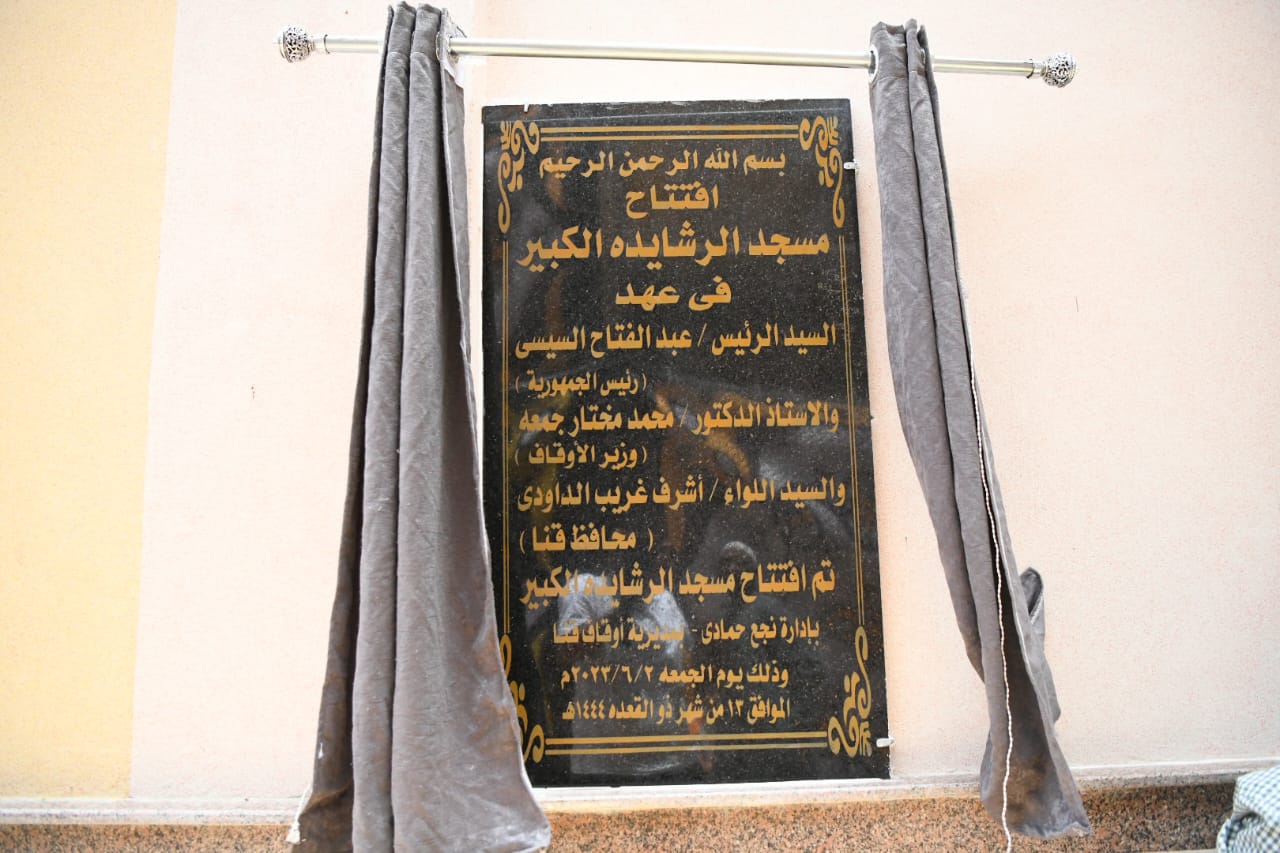 بسم الله الرحمن الرحيم
افتتاح
مسجد الرشايده الكبير
فى عهد
السيد الرئيس / عبد الفتاح السيسى
( رئيس الجمهورية )
والاستاذ الدكتور / محمد مختار جمعه
( وزير الأوقاف )
والسيد اللواء / أشرف غريب الداودى
( محافظ قنا )
تم افتتاح مسجد الرشايده الكبير
بإدارة نجع حمادى - بمديرية أوقاف قنا
وذلك يوم الجمعه ٢٠٢٣/٦/٢م
الموافق ١٣ من شهر ذو القعده ١٤٤٤هـ